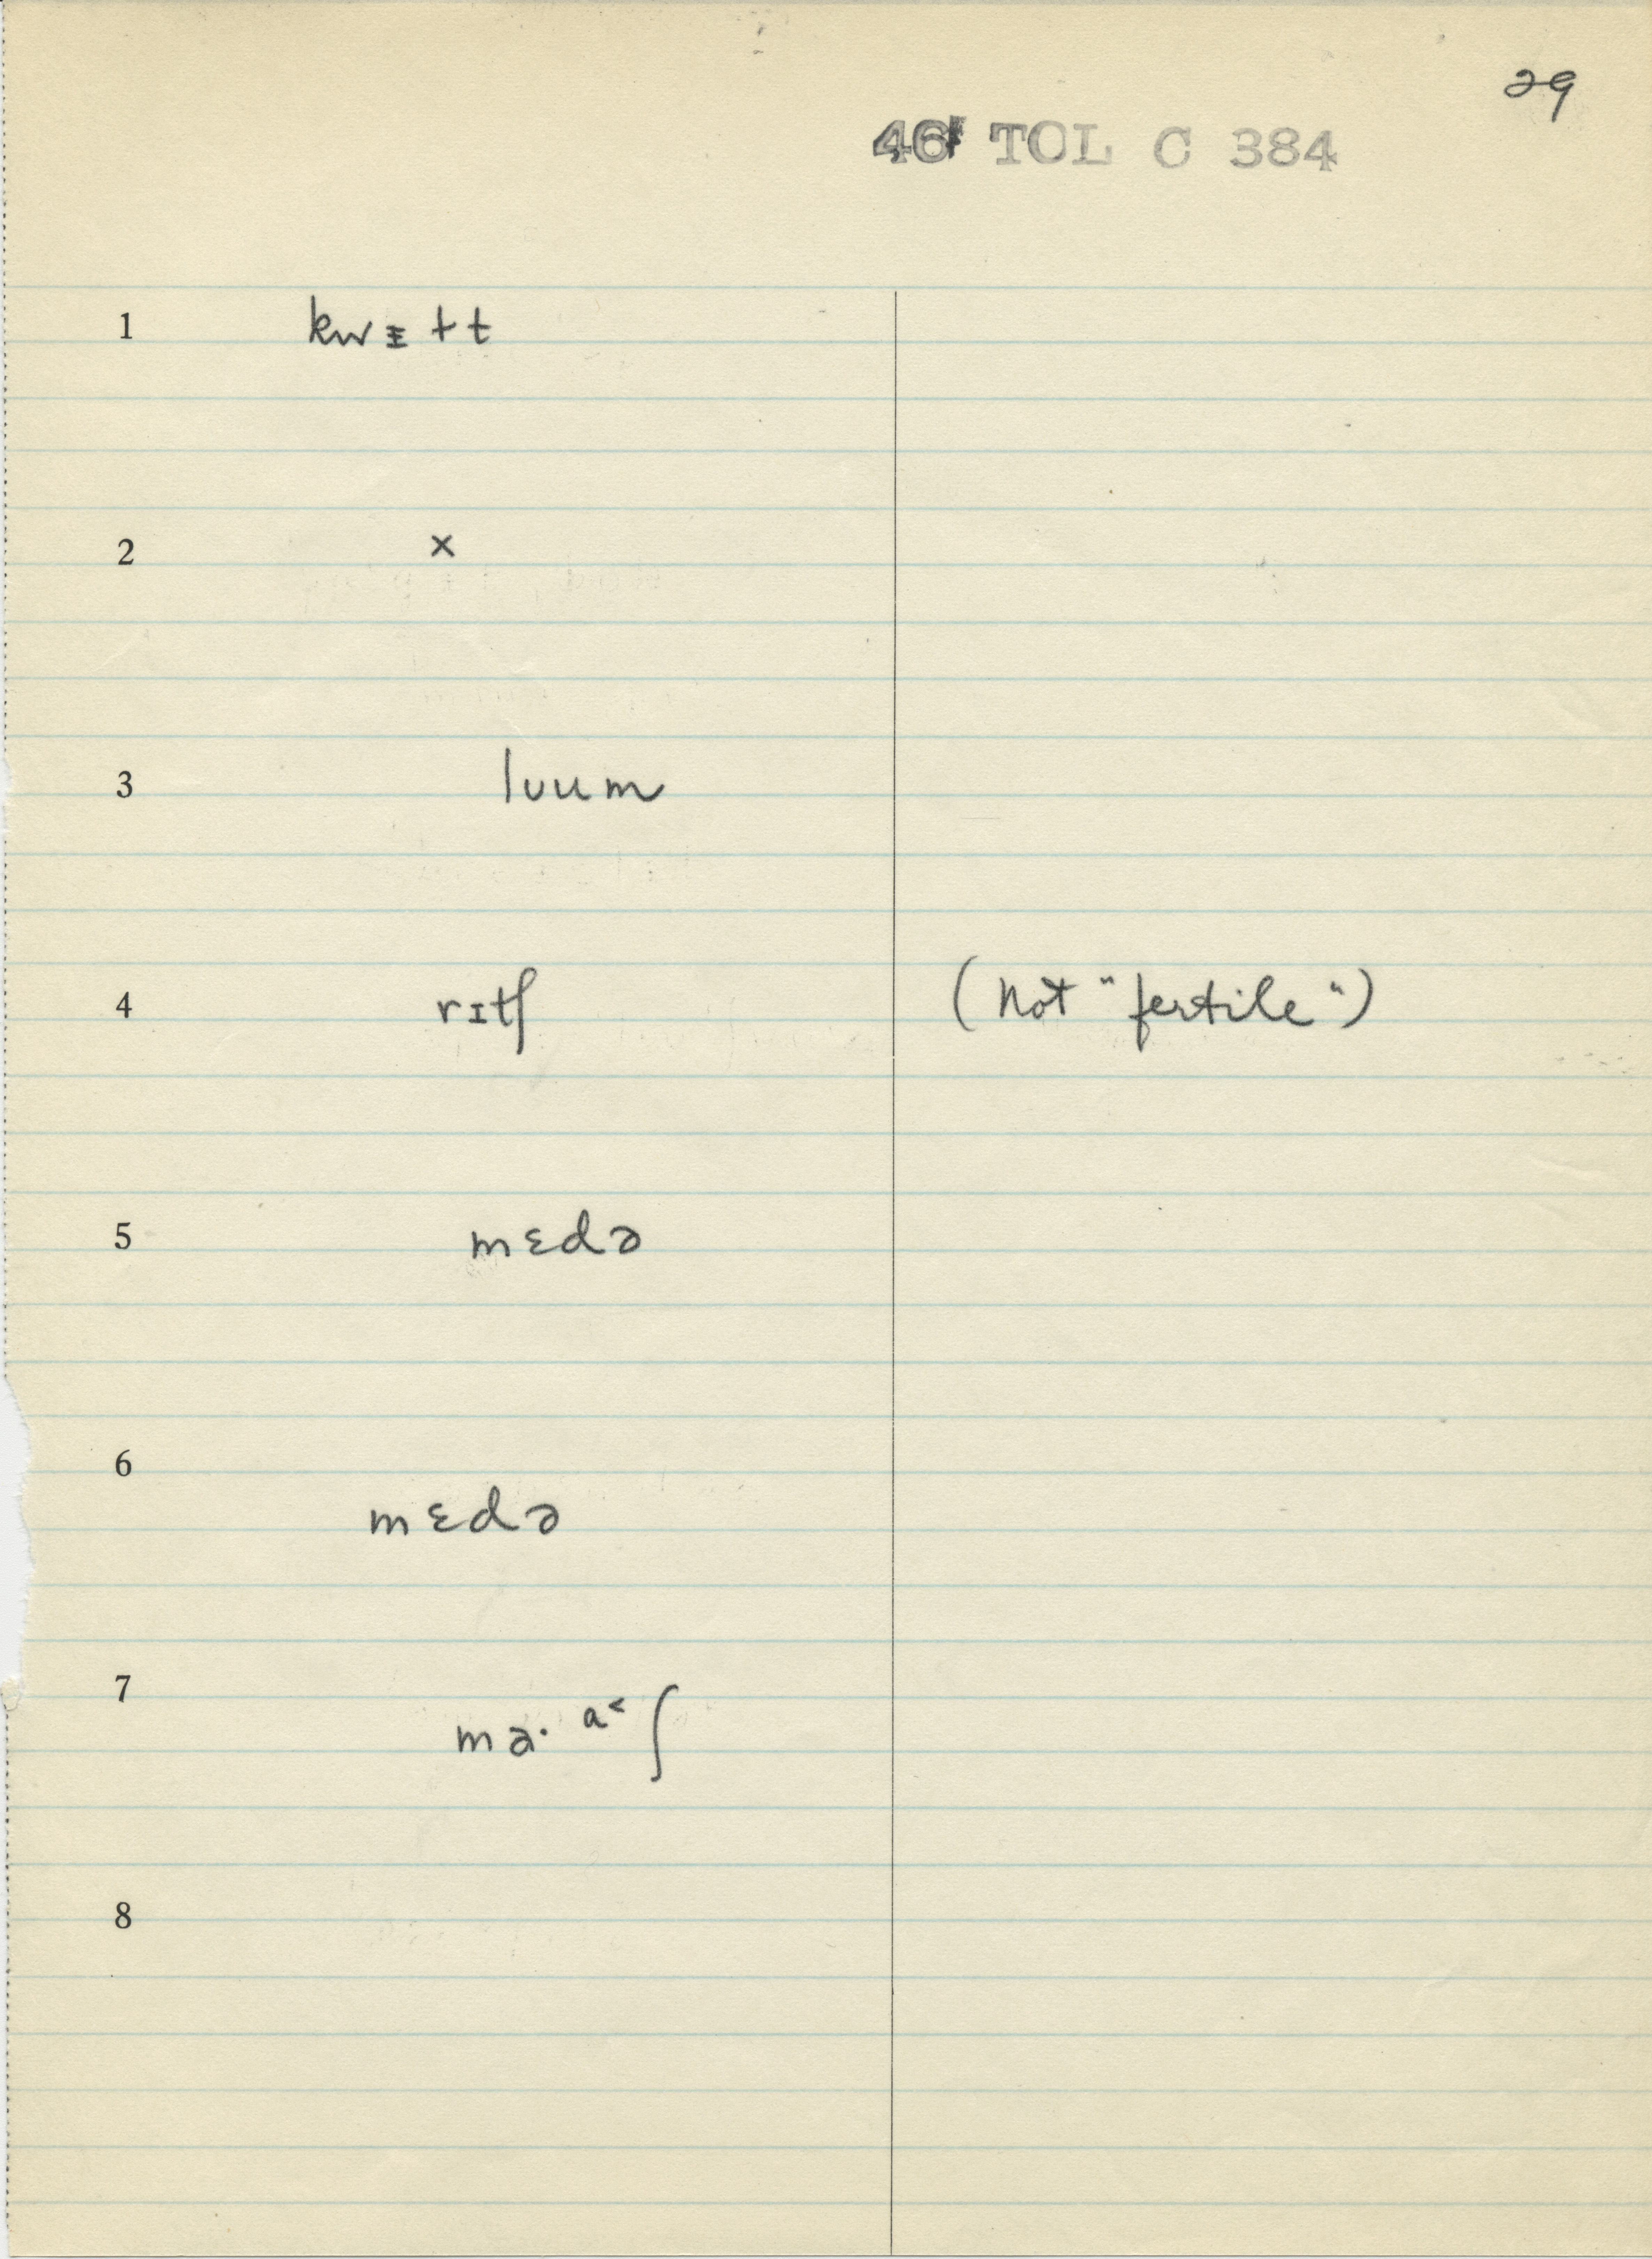 29
46 TOL C 384
1 kwᵻtt
2 ×
3 lʊum
4 rɪtʃ (not "fertile")
5 mɛdə
6 mɛdə
7 ma· ᵃ˂ ʃ
8